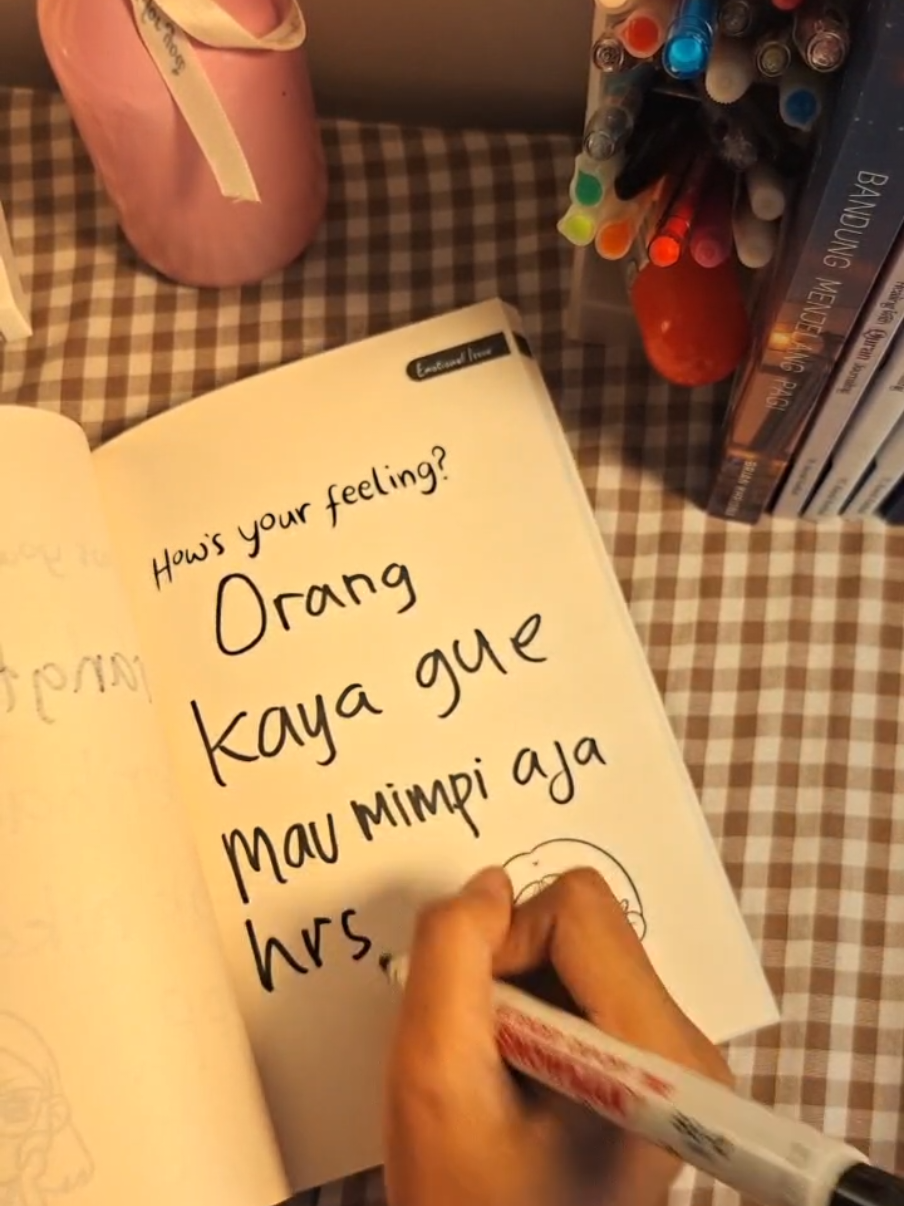 Emotional Issue
How's your feeling?
Orang
kaya gue
mau mimpi aja
hrs
BANDUNG MENJELANG PAGI